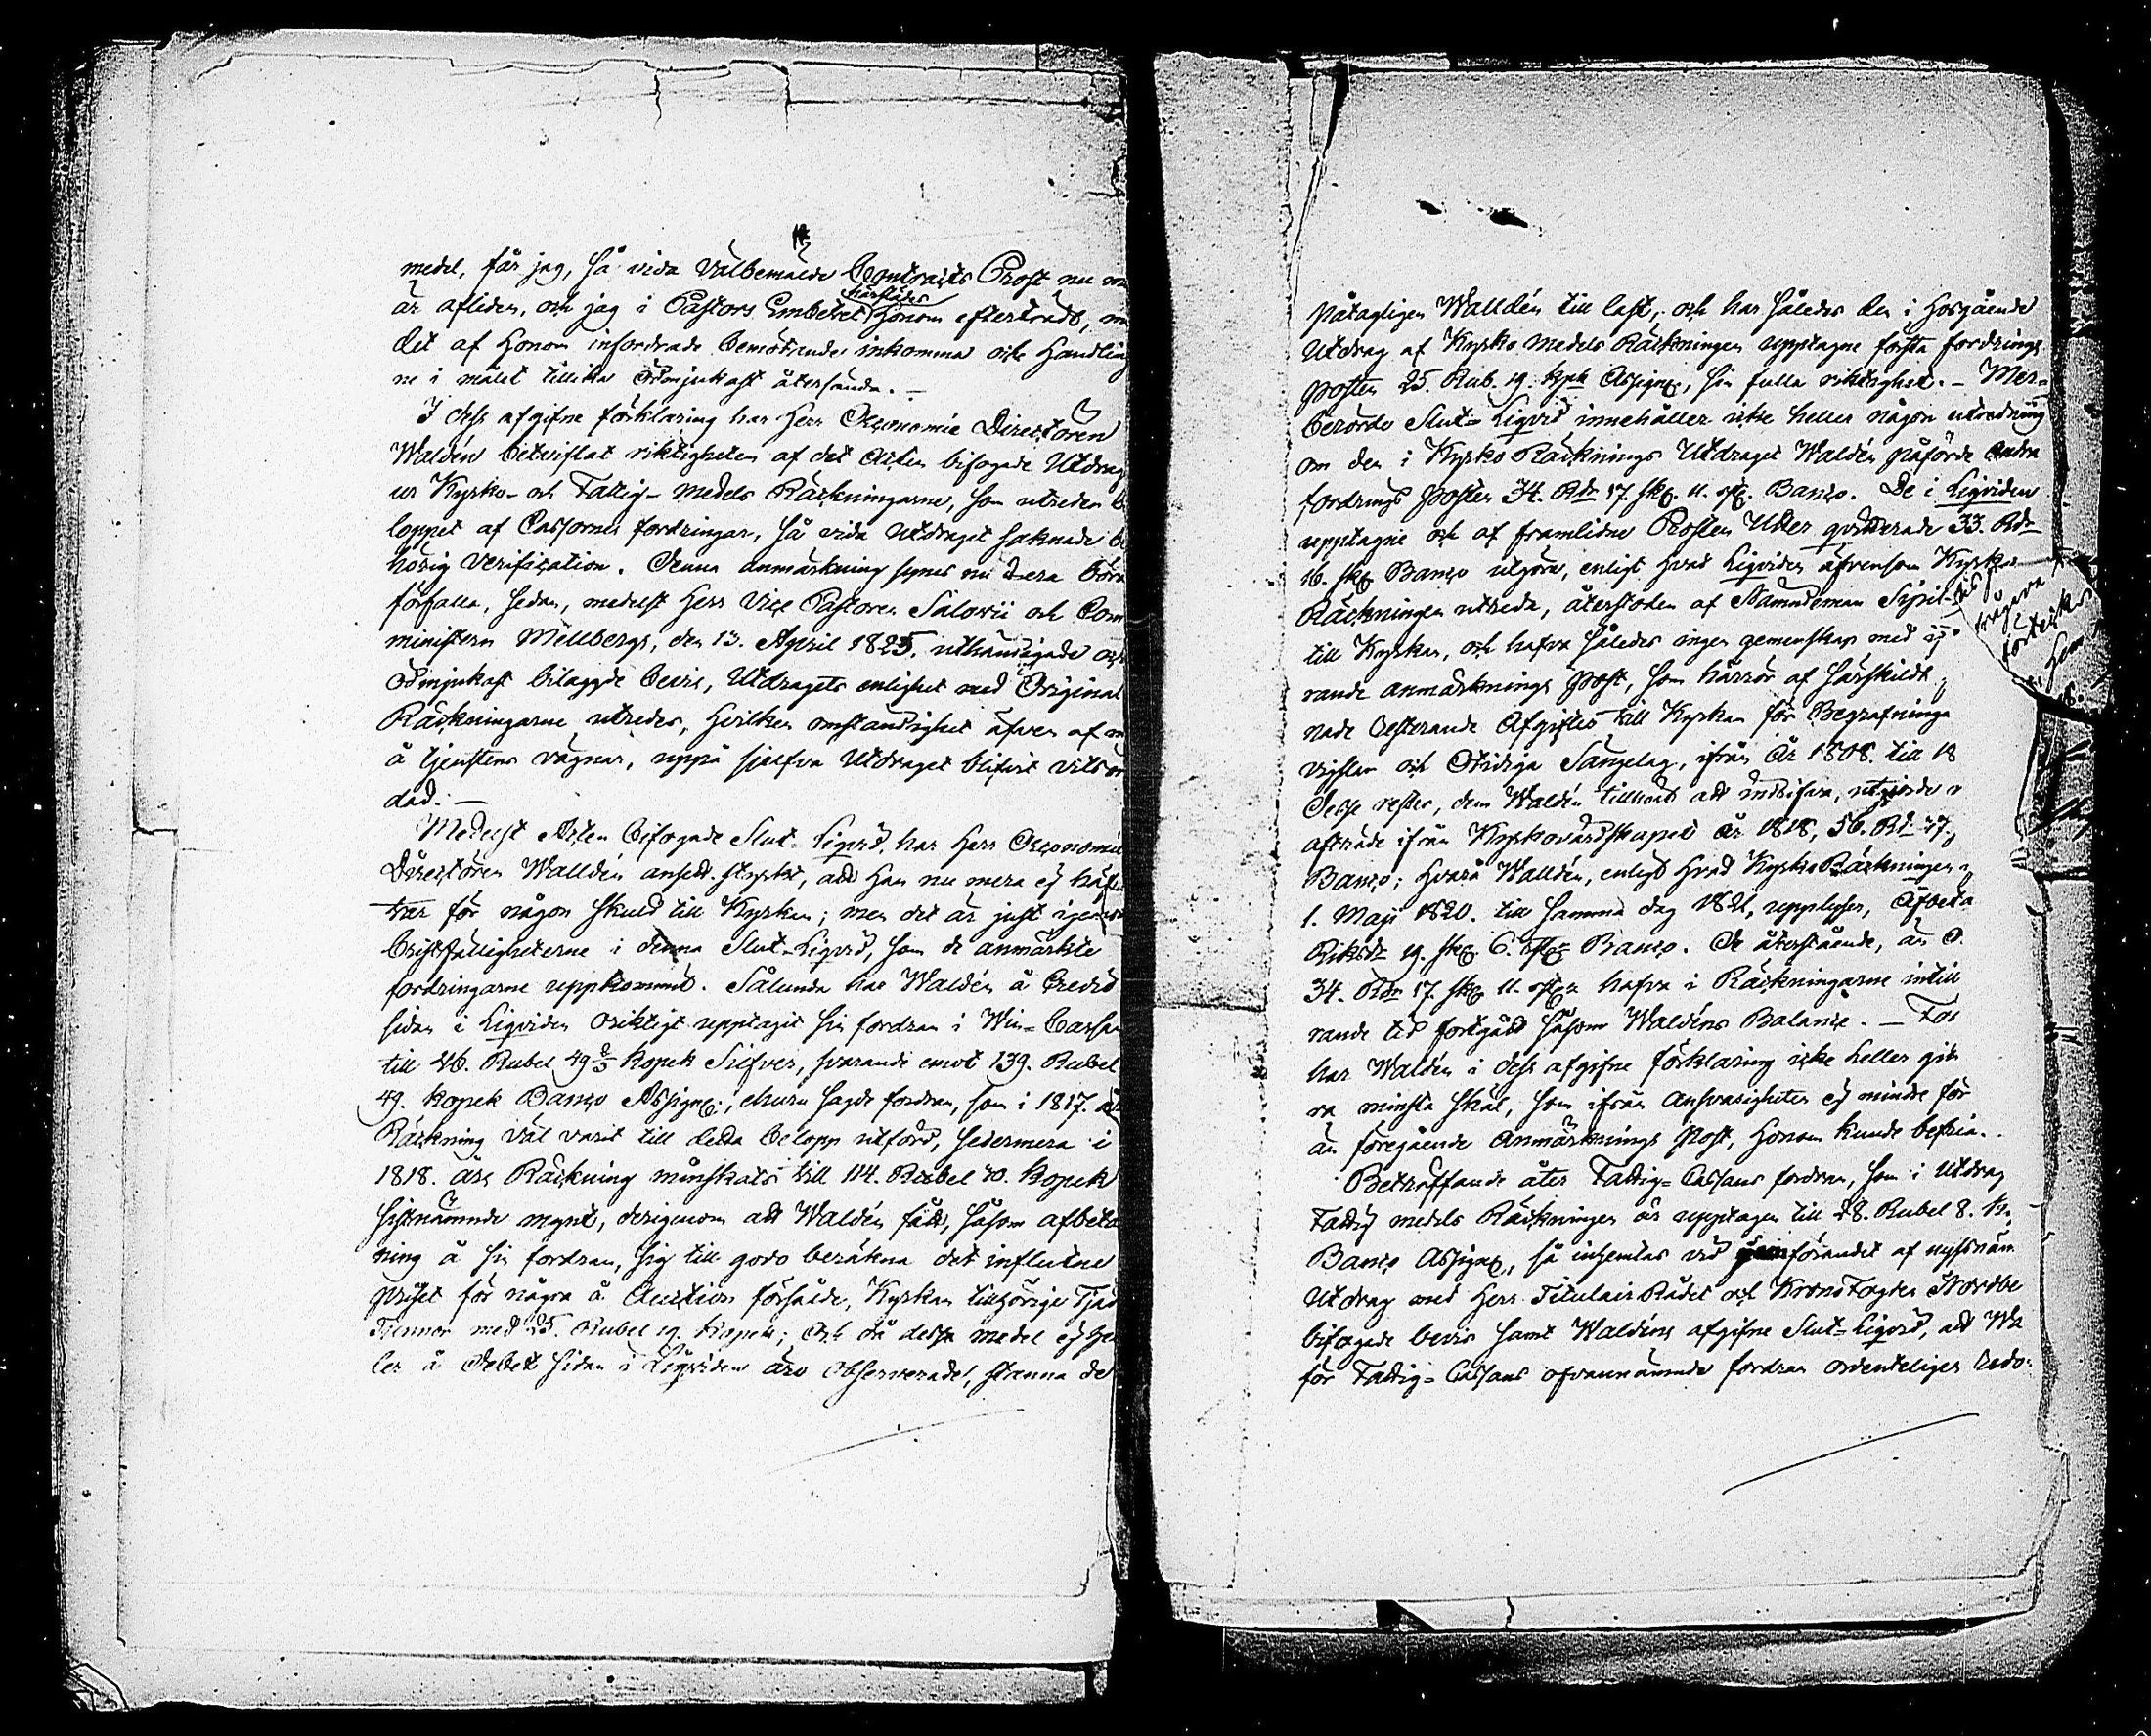 medel, får jag, så vida Välbemälde Contracts Prost nu m
är afliden, och jag i Pastors Embetet härstädes Honom efterträdt, m
det af Honom infordrade bemötande inkomma och Handling
ne i målet tillika ödmjukast återsända. —
I dess afgifne förklaring har Herr Oeconomie Directoren
Waldén betviflat riktigheten af det Acten bifogade Utdrag
ur Kyrko- och Fattig-medels Räckningarne, som utreder b
loppet af Cassornes fordringar, så vida Utdraget saknade be
hörig Verification. Denna anmärkning synes nu mera böra
förfalla, sedan, medelst Herr Vice Pastoren Salovii och Com
ministern Mellbergs, den 13. April 1825. uthändigade och
ödmjukast bilagde bevis, Utdragets enlighet med Original
Räckningarne utredes, hvilken omständighet äfven af m
å tjenstens vägnar, uppå sjelfva Utdraget blifvit vitsor
dad. —
Medelst Acten bifogade Slut-Liqvid, har Herr Oeconomie
Directoren Walldén ansedt styrkt, att han nu mera ej häf
tar för någon skuld till Kyrkan; men det är just igenom
bristfälligheterne i denna Slut-Liqvid, som de anmärkte
fordringarne uppkommit. Sålunda har Waldén å Credit
sidan i Liqviden oriktigt upptagit sin fordran i Win-Cassan
till 46. Rubel 49 2/3 Kopek Silfver, svarande emot 139. Rubel
49. Kopek Banco Assigne:, ehuru sagde fordran, som i 1817. års
Räckning väl varit till detta belopp utförd, sedermera i
1818. års Räckning minskats till 114. Rubel 30. Kopek
sistnämnde mynt, derigenom att Waldén fått, såsom afbetal
ning å sin fordran, sig till godo beräkna det influtne
priset för några å Auction försålde, Kyrkan tillhörige Tjär
Tunnor med 25. Rubel 19. Kopek; Och då dessa medel ej hel
ler å Debet sidan i Liqviden äro observerade, stanna de
påtagligen Walldén till last, och har således den i hosgående
Utdrag af Kyrko medels Räckningen upptagne första fordrings
posten 25. Rub. 19. Kpk Assigne, sin fulla riktighet. — Mer-
berörde Slut-Liqvid innehåller icke heller någon utredning
om den i Kyrko Räcknings Utdraget Waldén påförde Andra
fordrings posten 34. Rdr 17. sk. 11. rst. Banco. De i Liqviden
upptagne och af framlidne Prosten Uhler qvitterade 33. Rdr
16. sk. Banco utgöra, enligt hvad Liqviden äfvensom Kyrko
Räckningen utreda, återstoden af Nämndeman
till Kyrkan, och hafva således ingen gemenskap med
rande anmärknings post, som härrör af särskildt
nade Resterande Afgifter till Kyrkan för Begrafninga
vigslar och Otidiga Sängelag, ifrån År 1808. till 18
Desse rester, dem Waldén tillhört att indrifva, utgjorde
afträde ifrån Kyrkovärdskapet År 1818, 56. Rd. 47.
Banco; hvarå Walldén, enligt hvad Kyrko Räckningen
1. Maji 1820. till samma dag 1821, upplyser, afbeta
Riksdr 19. sk. 6. rst. Banco. De återstående, är
34. Rdr 17. sk. 11. rst. hafva i Räckningarne intill
rande tid fortgått såsom Waldéns Balance. —
har Waldén i dess afgifne förklaring icke heller
ra minsta skäl, som ifrån ansvarigheten ej mindre för
än föregående Anmärknings Post, honom kunde befria.
Beträffande åter Fattig-Cassans fordran, som i Utdrag
Fattig medels Räckningen är upptagen till 28. Rubel 8. K
Banco Assigne, så inhemtas vid jemförandet af nyssnäm
Utdrag med Herr Titulair Rådet och Kronofogden Nordbe
bifogade bevis samt Waldéns afgifne Slut-Liqvid, att Wa
för Fattig-Cassans ofvannämnde fordran ordenteligen redo-